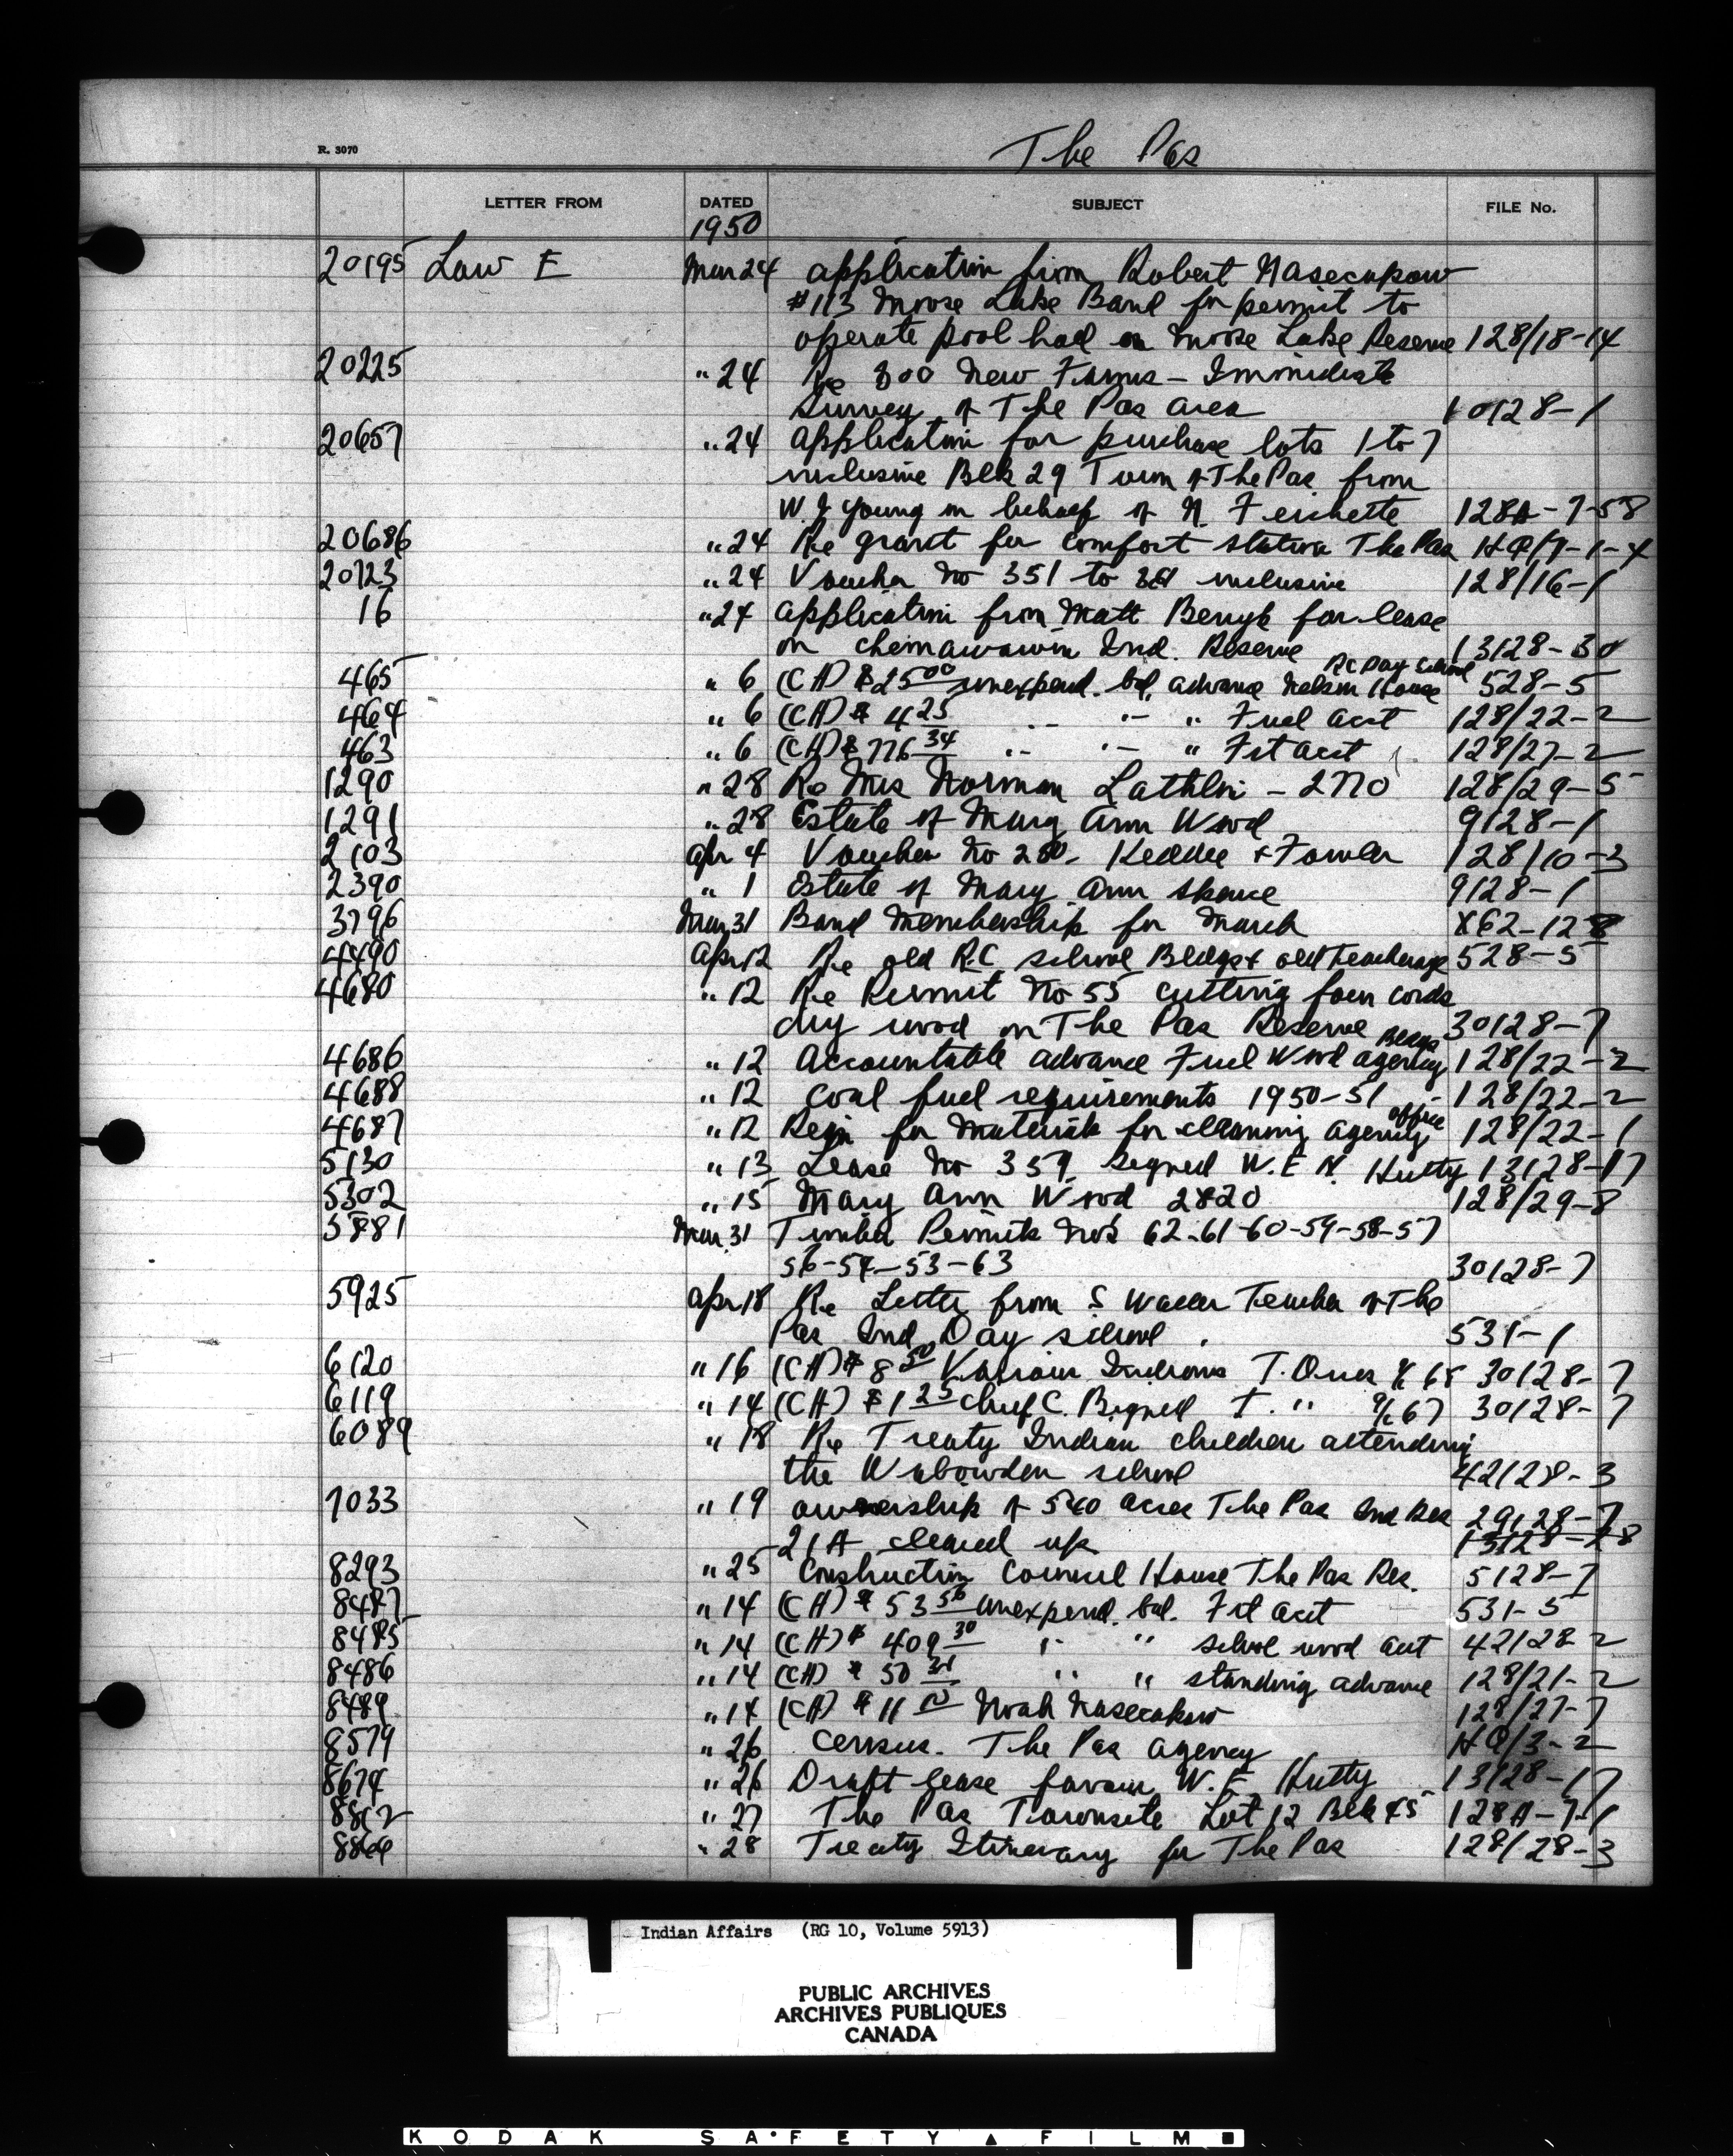 R. 3070
The Pas
LETTER FROM DATED SUBJECT FILE No.
1950
20195 Law E Mar 24 application from Robert Nasecapow
#113 Moose Lake Band for permit to
operate pool hall on Moose Lake Reserve 128/18-14
20225 " 24 Re 800 New Farms - Immediate
Survey of The Pas area 10128-1
20657 " 24 application for purchase lots 1 to 7
inclusive Blk 29 Town of The Pas from
W J Young on behalf of N. 128A-7-58
20686 " 24 Re grant for comfort station The Pas HQ/7-1-4
20723 " 24 Voucher No 351 to inclusive 128/16-1
16 " 24 application from Matt for lease
on Chemawawin Ind. Reserve 13128-30
465 " 6 (CH) $25 00 unexpend. bal. advance Nelson House RC Day School 528-5
464 " 6 (CH) $ 4 25 " " " Fuel acct 128/22-2
463 " 6 (CH) $ 776 34 " " " Frt acct 128/27-2
1290 " 28 Re Mrs Norman Lathlin - 2770 128/29-5
1291 " 28 Estate of Mary Ann Wood 9128-1
2103 Apr 4 Voucher No 280. Keddie & Fowler 128/10-3
2390 " 1 Estate of Mary Ann Spence 9128-1
3796 Mar 31 Band Membership for March X62-128
4490 Apr 12 Re old R.C. school Bldgs & old teacherage 528-5
4680 " 12 Re Permit No 55 cutting four cords
dry wood on The Pas Reserve 30128-7
4686 " 12 Accountable advance Fuel Wood agency Bldgs 128/22-2
4688 " 12 Coal fuel requirements 1950-51 128/22-2
4687 " 12 Reqn for materials for cleaning agency office 128/22-1
5130 " 13 Lease No 359 signed W. E N. Hutty 13128-17
5302 " 15 Mary Ann Wood 2820 128/29-8
5881 Mar. 31 Timber Permits No's 62-61-60-59-58-57
56-54-53-63 30128-7
5925 Apr 18 Re Letter from S Waller Teacher of The
Pas Ind Day school. 531-1
6120 " 16 (CH) $ 8 50 Various Indians T. Dues % 68 30128-7
6119 " 14 (CH) $ 1 25 Chief C. Bignell T. " % 67 30128-7
6089 " 18 Re Treaty Indian children attending
the Wabowden school 42128-3
7033 " 19 ownership of 540 acres The Pas Ind Res 29128-7
21A cleared up 13128-28
8293 " 25 Construction Council House The Pas Res. 5128-7
8487 " 14 (CH) $ 53 56 unexpend. bal. Frt acct 531-5
8485 " 14 (CH) $ 409 30 " " school wood acct 42128-2
8486 " 14 (CH) $ 50 " " standing advance 128/21-2
8489 " 14 (CH) $ 11 Noah Nasecapow 128/27-7
8579 " 26 Census. The Pas Agency HQ/3-2
8674 " 26 Draft lease favour W. E Hutty 13128-17
8862 " 27 The Pas Townsite Lot 12 Blk 45 128A-7-1
8866 " 28 Treaty Itinerary for The Pas 128/28-3
Indian Affairs (RG 10, Volume 5913)
PUBLIC ARCHIVES
ARCHIVES PUBLIQUES
CANADA
KODAK SAFETY FILM